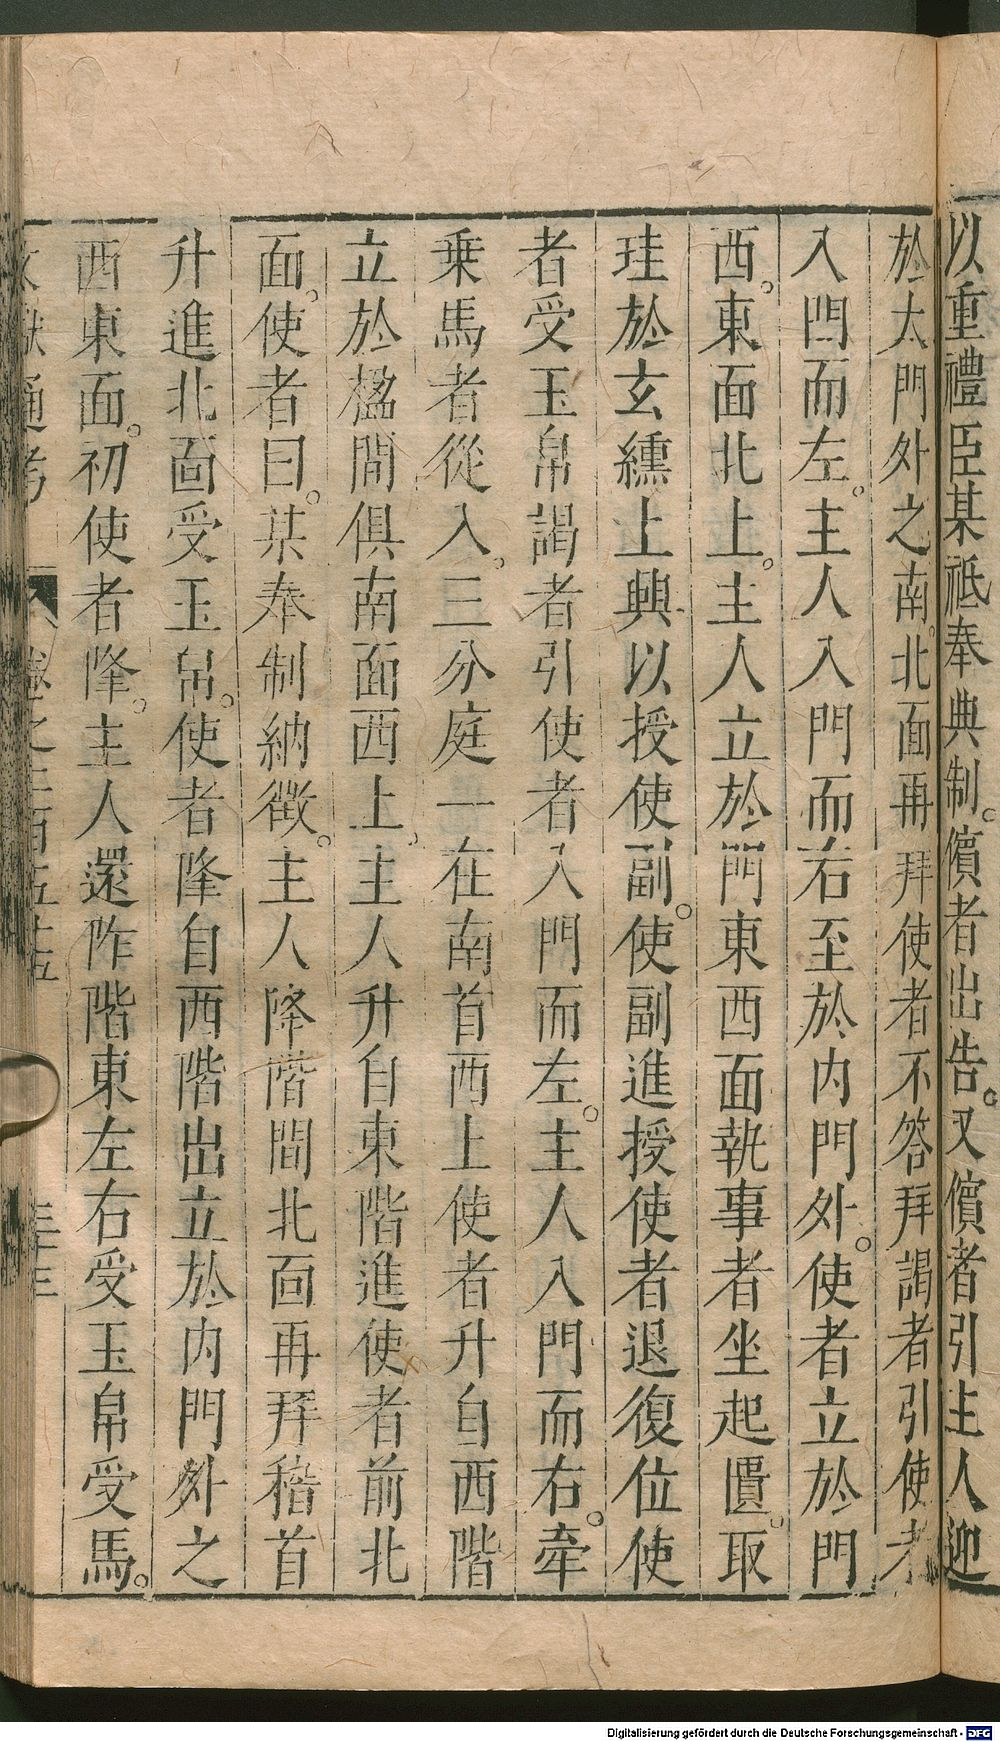 以重禮臣某祗奉典制。儐者出告。又儐者引主人迎
於太門外之南。北面再拜使者不答拜謁者引使者
入門而左。主人入門而右至於內門外。使者立於門
西。東面北上。主人立於門東西面執事者坐起匵。取
珪於玄纁上興以授使副。使副進授使者退復位使
者受玉帛謁者引使者入門而左。主人入門而右。牽
乗馬者從入。三分庭一在南首西上使者升自西階
立於楹間俱南面西上。主人升自東階進使者前北
面。使者曰。某奉制納徵。主人降階間北面再拜稽首
升進北面受玉帛。使者降自西階出立於内門外之
西東面。初使者降。主人還阼階東左右受玉帛受馬。
文獻通考 卷之二百五十五 三十三
Digitalisierung gefördert durch die Deutsche Forschungsgemeinschaft - DFG